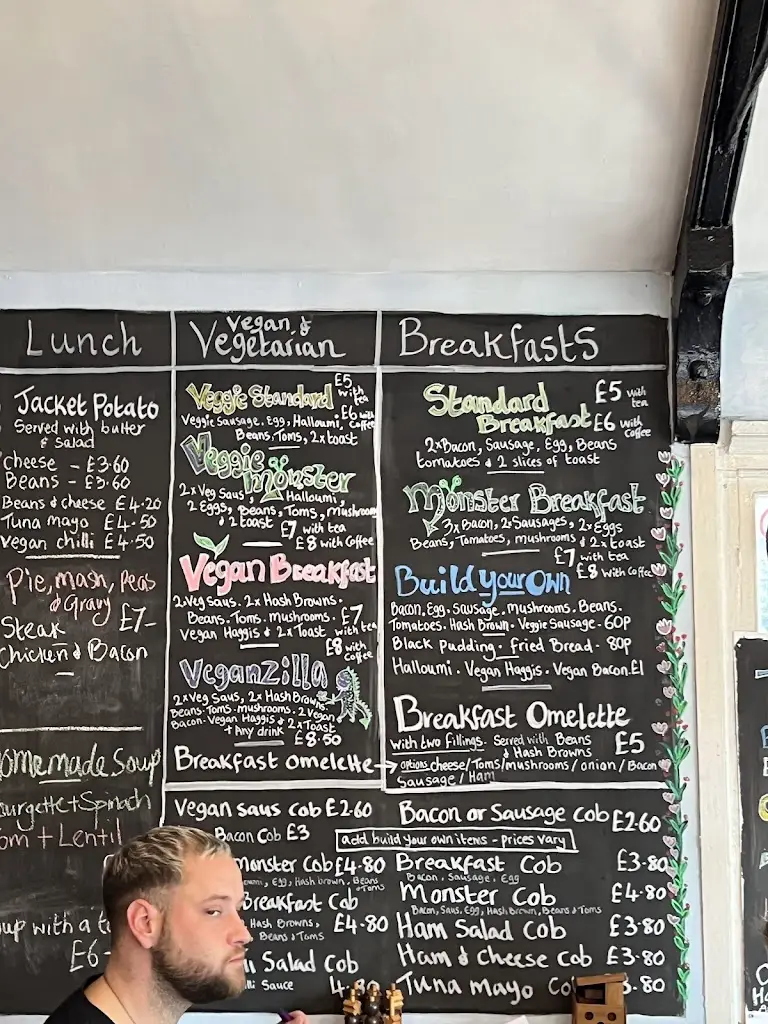 Lunch
Jacket Potato
Served with butter
& salad
Cheese - £3.60
Beans - £3.60
Beans & cheese £4.20
Tuna mayo £4.50
Vegan chilli £4.50
Pie, mash, peas
& Gravy
£7-
Steak
Chicken & Bacon
Homemade Soup
Courgette + Spinach
Lentil
with a
£6-
Vegan &
Vegetarian
Veggie Standard £5 with tea
£6 with Coffee
Veggie Sausage, Egg, Halloumi,
Beans, Toms, 2x toast
Veggie
Monster
2x Veg Saus, 2 Halloumi,
2 Eggs, Beans, Toms, Mushroom
& 2 toast £7 with tea
£8 with Coffee
Vegan Breakfast
2x Veg Saus. 2x Hash Browns.
Beans. Toms. Mushrooms. £7 with tea
Vegan Haggis & 2x Toast
£8 with Coffee
Veganzilla
2x Veg Saus, 2x Hash Browns
Beans. Toms. mushrooms. 2 Vegan
Bacon. Vegan Haggis & 2x Toast
+ Any drink £8.50
Breakfast Omelette
Breakfasts
Standard £5 with tea
Breakfast £6 with Coffee
2x Bacon, Sausage, Egg, Beans
tomatoes & 2 slices of toast
Monster Breakfast
3x Bacon, 2x Sausages, 2x Eggs
Beans, Tomatoes, mushrooms & 2x toast
£7 with tea
£8 with Coffee
Build Your Own
Bacon. Egg. Sausage. mushrooms. Beans.
Tomatoes. Hash Brown. Veggie Sausage. 60p
Black pudding. fried Bread - 80p
Halloumi. Vegan Haggis. Vegan Bacon. £1
Breakfast Omelette
with two fillings. Served with Beans £5
& Hash Browns
options cheese/Toms/mushrooms/onion/Bacon
Sausage/Ham
Vegan saus cob £2.60
Bacon Cob £3
Monster Cob £4.80
Egg, Hash brown, Beans
& Toms
Breakfast Cob
Hash Browns, £4.80
Beans & Toms
Salad Cob
Sauce
Bacon or Sausage Cob £2.60
add build your own items - prices vary
Breakfast Cob £3.80
Bacon, Sausage, Egg
Monster Cob £4.80
Bacon, Saus, Egg, Hash Brown, Beans & Toms
Ham Salad Cob £3.80
Ham & cheese Cob £3.80
Tuna mayo